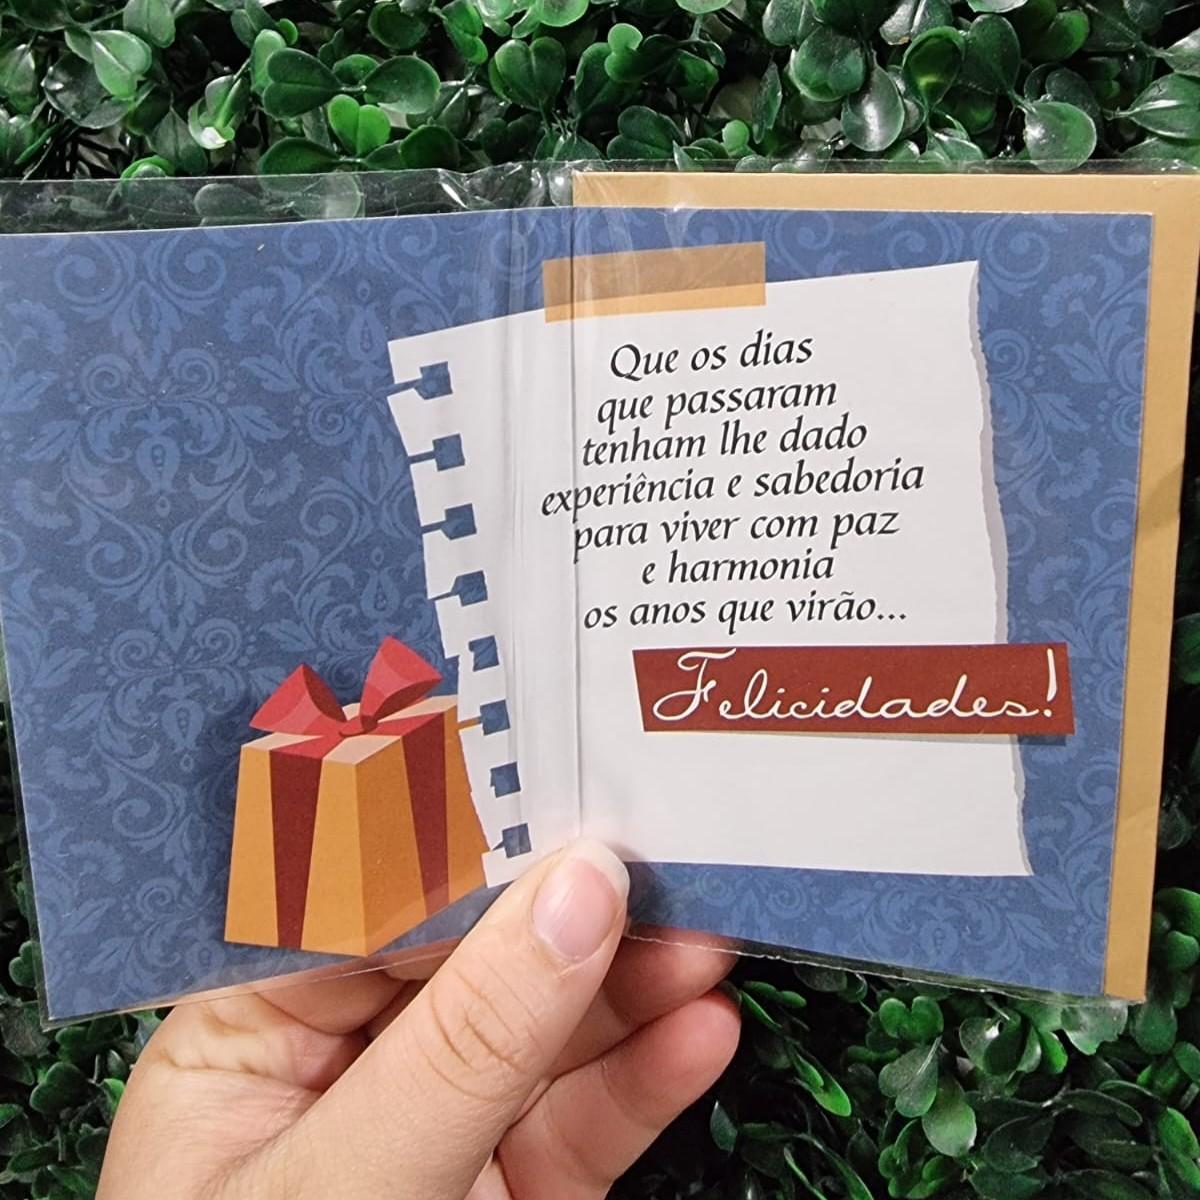 Que os dias
que passaram
tenham lhe dado
experiência e sabedoria
para viver com paz
e harmonia
os anos que virão...
Felicidades!